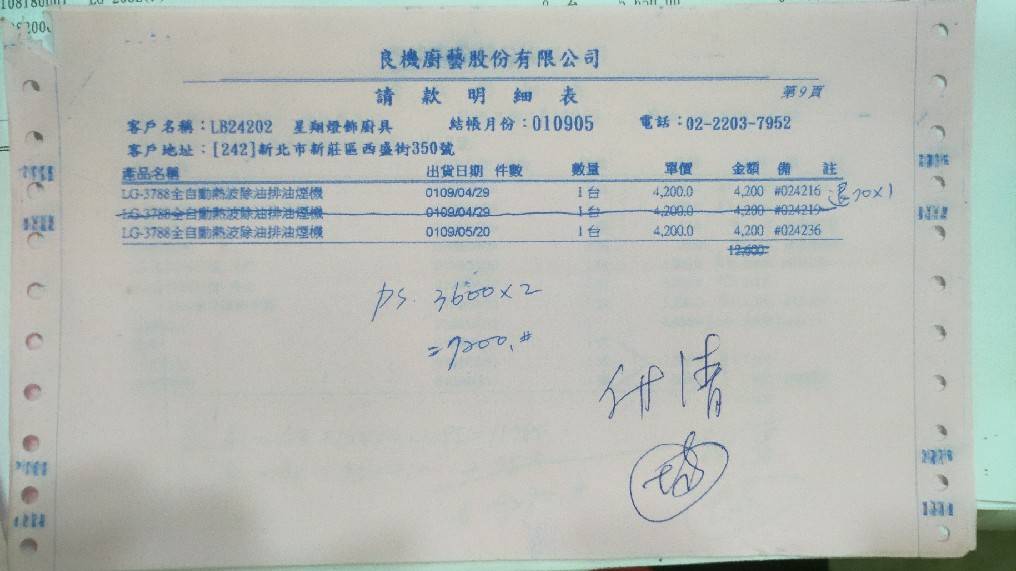 良機廚藝股份有限公司
請款明細表 第9頁
客戶名稱：LB24202 星翔燈飾廚具 結帳月份：010905 電話：02-2203-7952
客戶地址：[242]新北市新莊區西盛街350號
產品名稱 出貨日期 件數 數量 單價 金額 備註
LG-3788全自動熱波除油排油煙機 0109/04/29 1台 4,200.0 4,200 #024216 退90×1
LG-3788全自動熱波除油排油煙機 0109/04/29 1台 4,200.0 4,200 #024219
LG-3788全自動熱波除油排油煙機 0109/05/20 1台 4,200.0 4,200 #024236
12,600
PS. 3600×2
=7200.#
付清